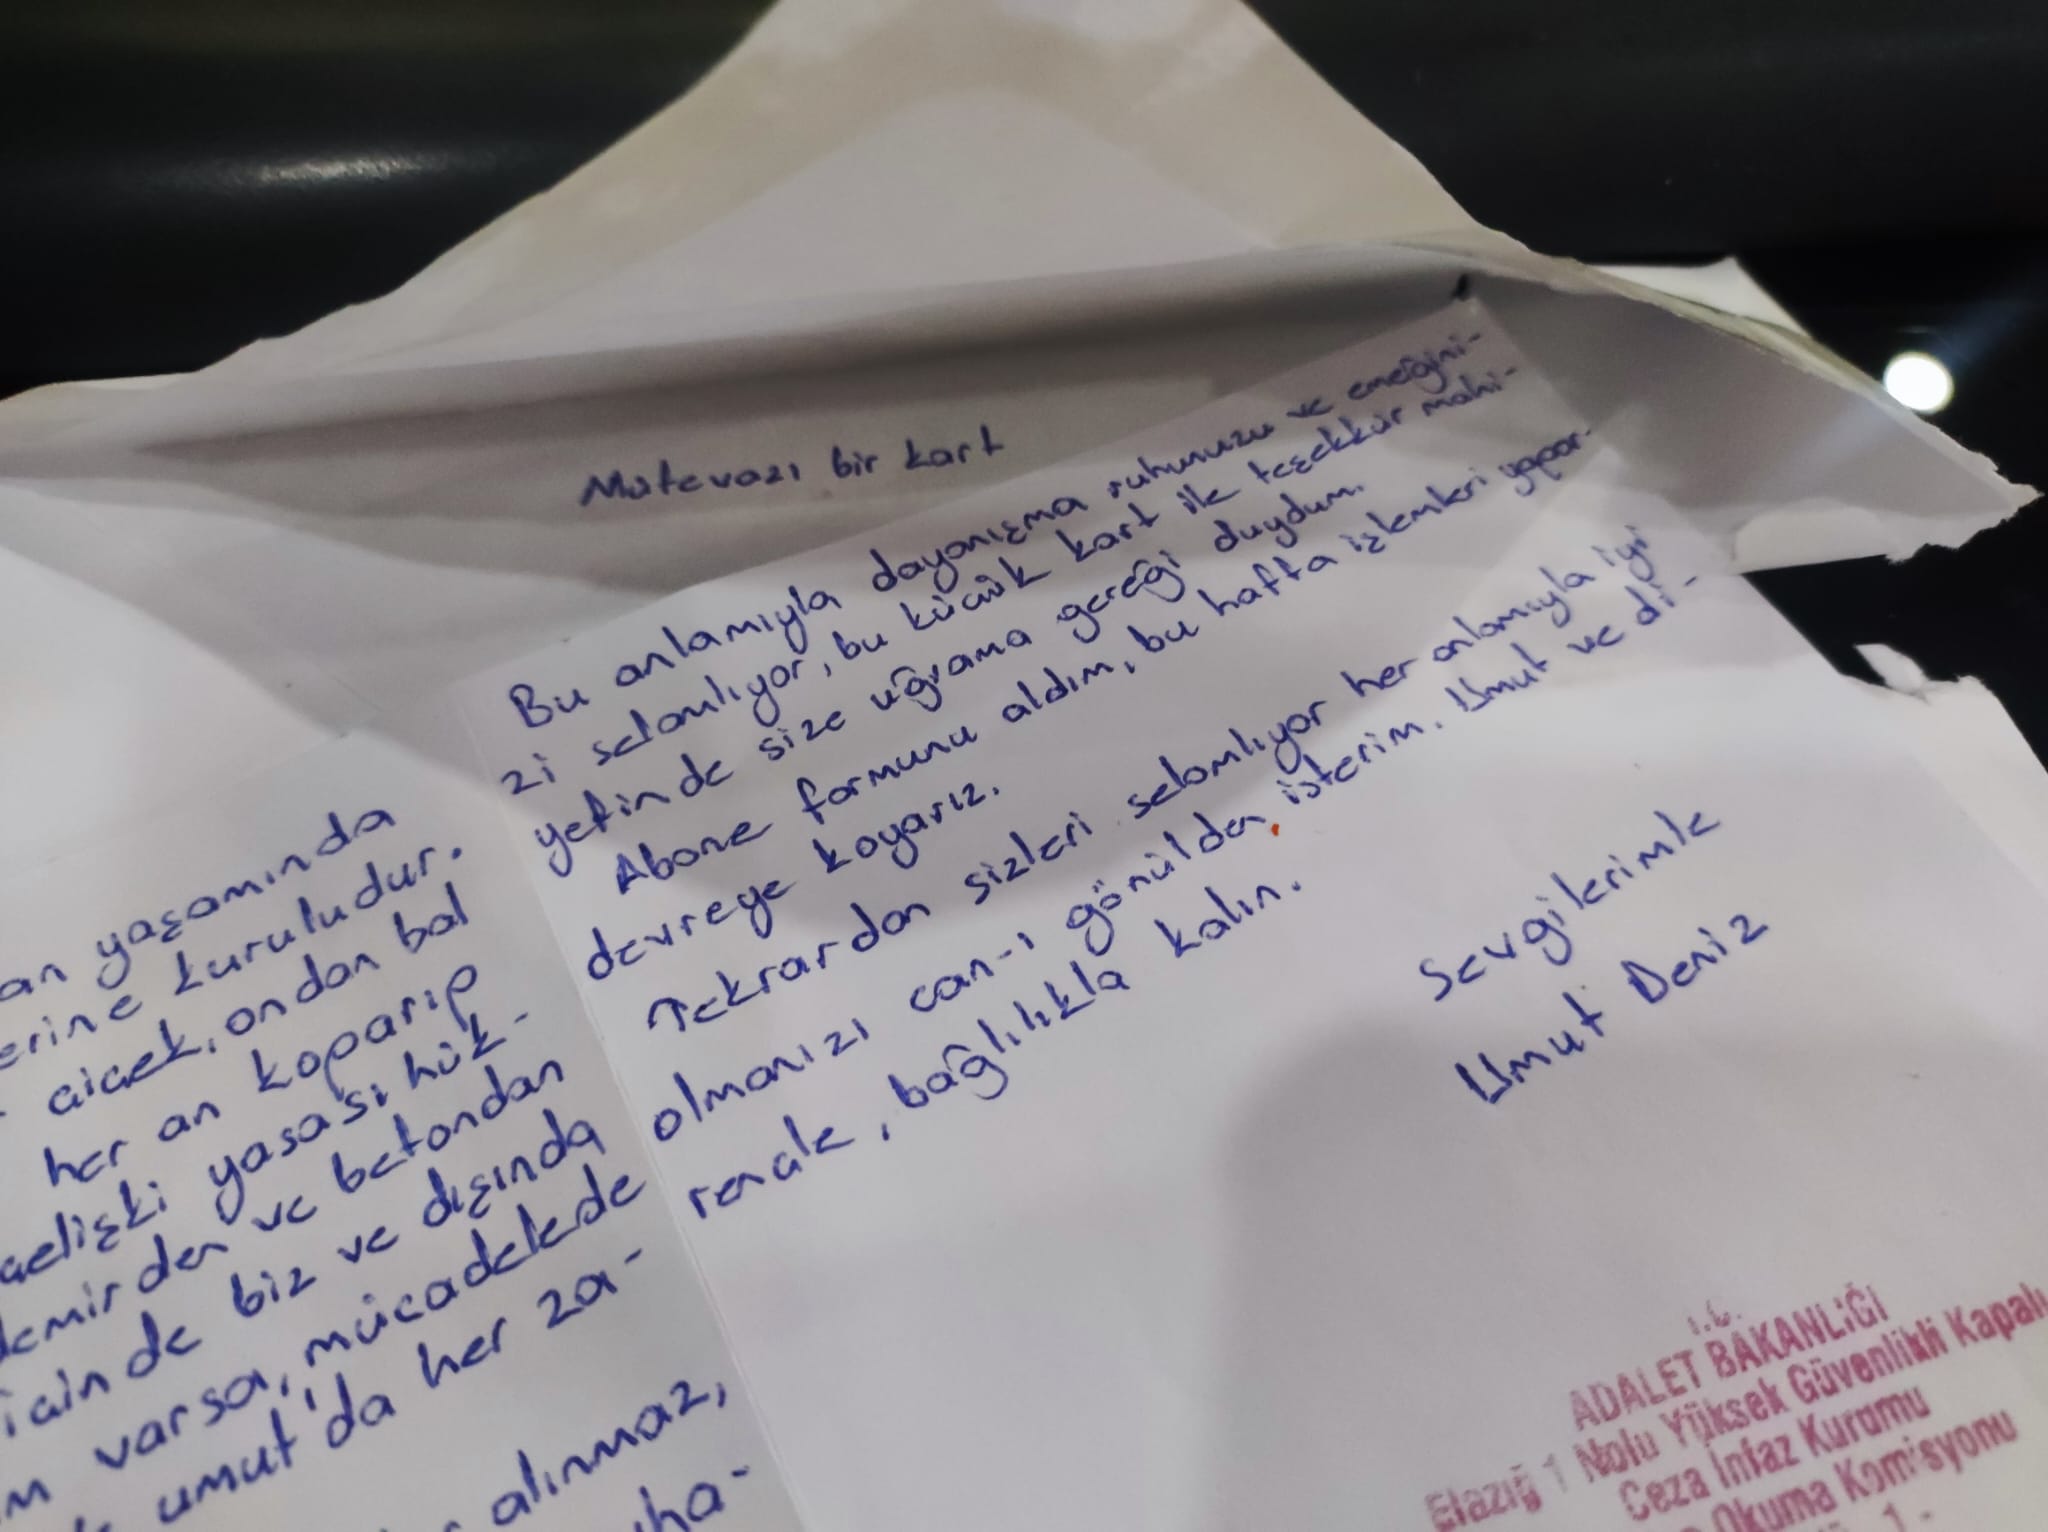 Mütevazı bir kart
Bu anlamıyla dayanışma ruhunuzu ve emeğini-
zi selamlıyor, bu küçük kart ile teşekkür mahi-
yetinde size uğrama gereği duydum.
Abone formunu aldım, bu hafta işlemleri yapar-
devreye koyarız.
Tekrardan sizleri selamlıyor her anlamıyla iyi
olmanızı can-ı gönülden, isterim. Umut ve di-
rençle, bağlılıkla kalın.
Sevgilerimle
Umut Deniz
an yaşamında
erine kuruludur.
çiçek, ondan bal
her an koparıp
çelişki yasası hük-
demirden ve betondan
içinde biz ve dışında
varsa, mücadelede
umut'da her za-
alınmaz,
T.C.
ADALET BAKANLIĞI
Elazığ 1 Nolu Yüksek Güvenlikli Kapalı
Ceza İnfaz Kurumu
Okuma Komisyonu
- 1 -